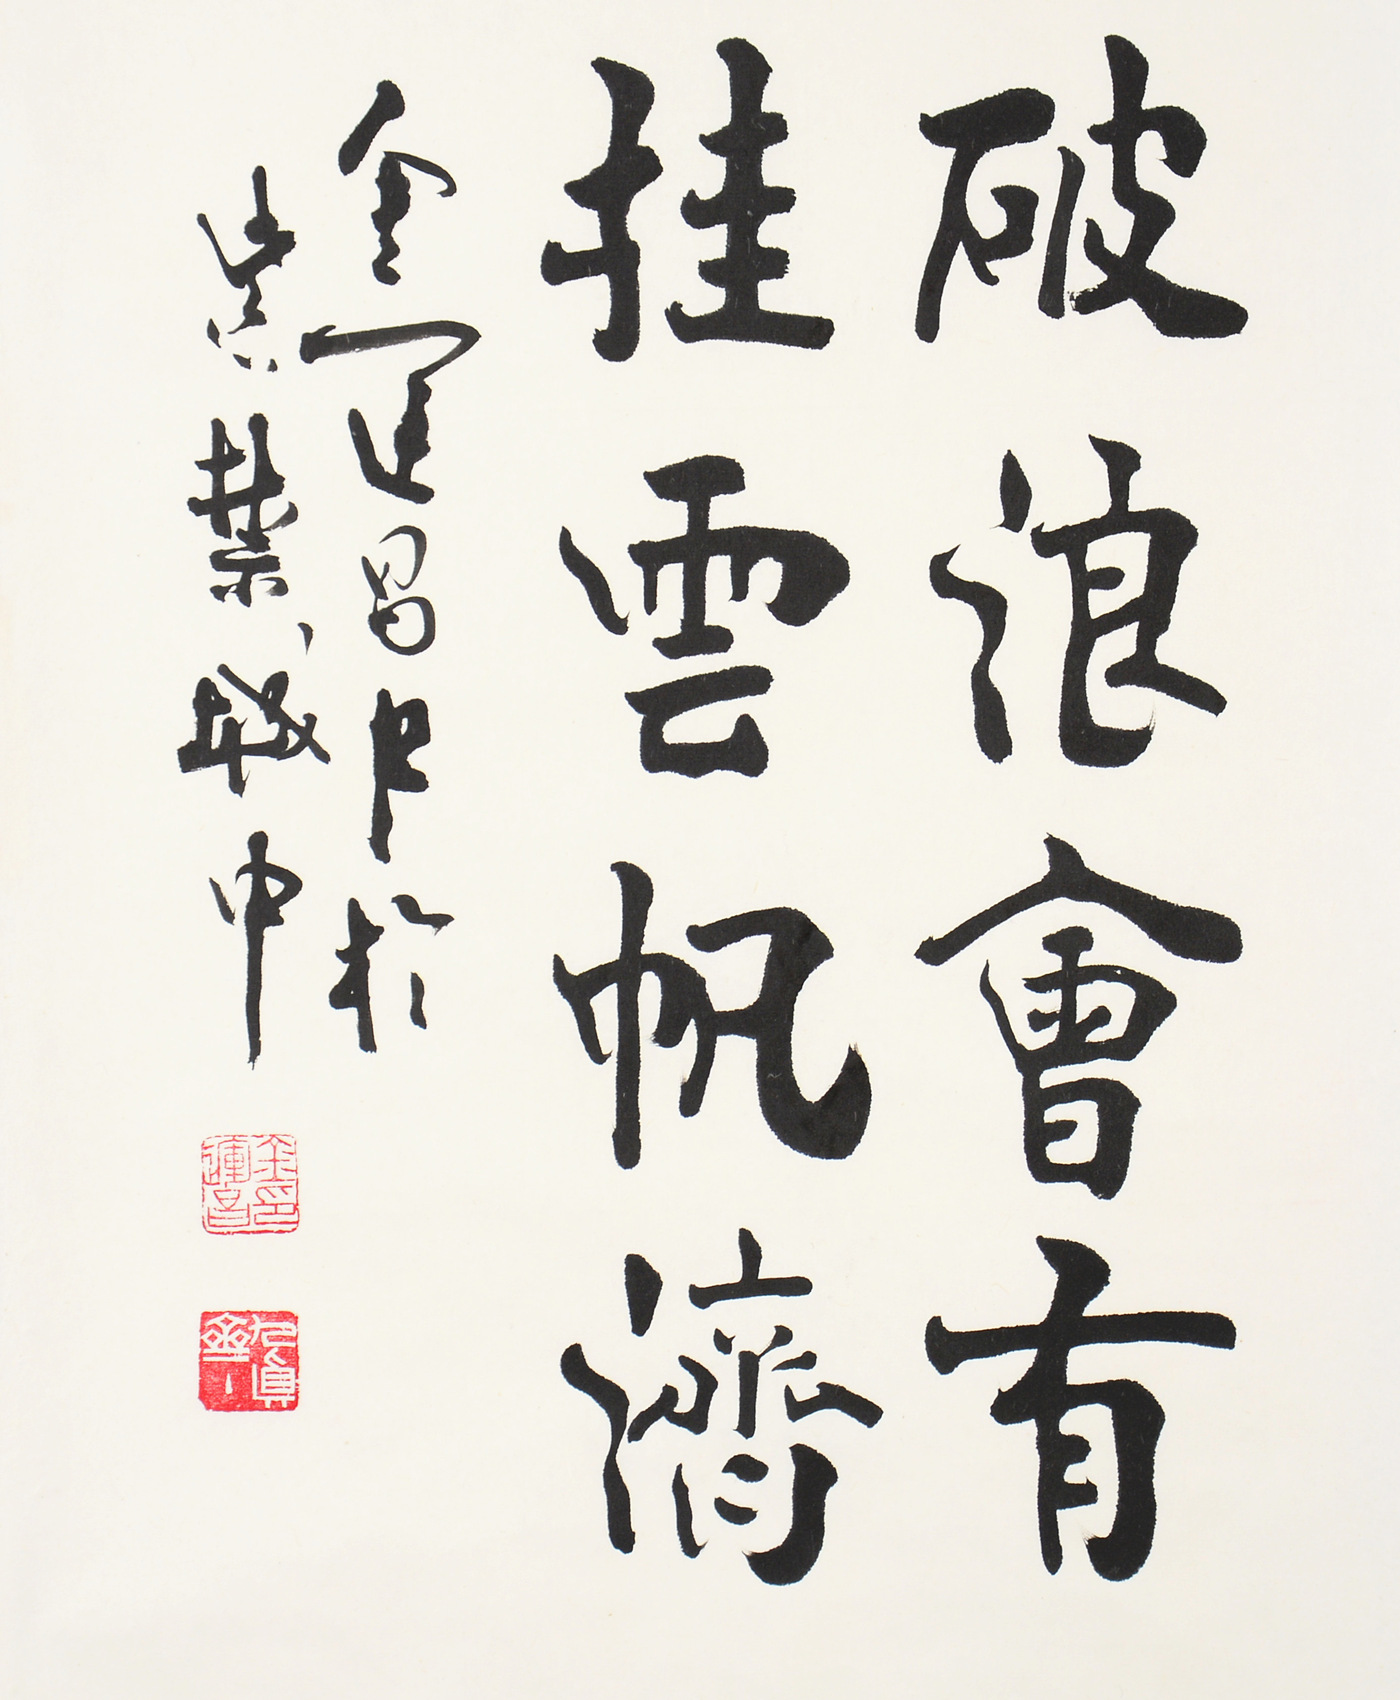 破浪會有
挂雲帆濟
金運昌书於
紫禁城中
金運昌印